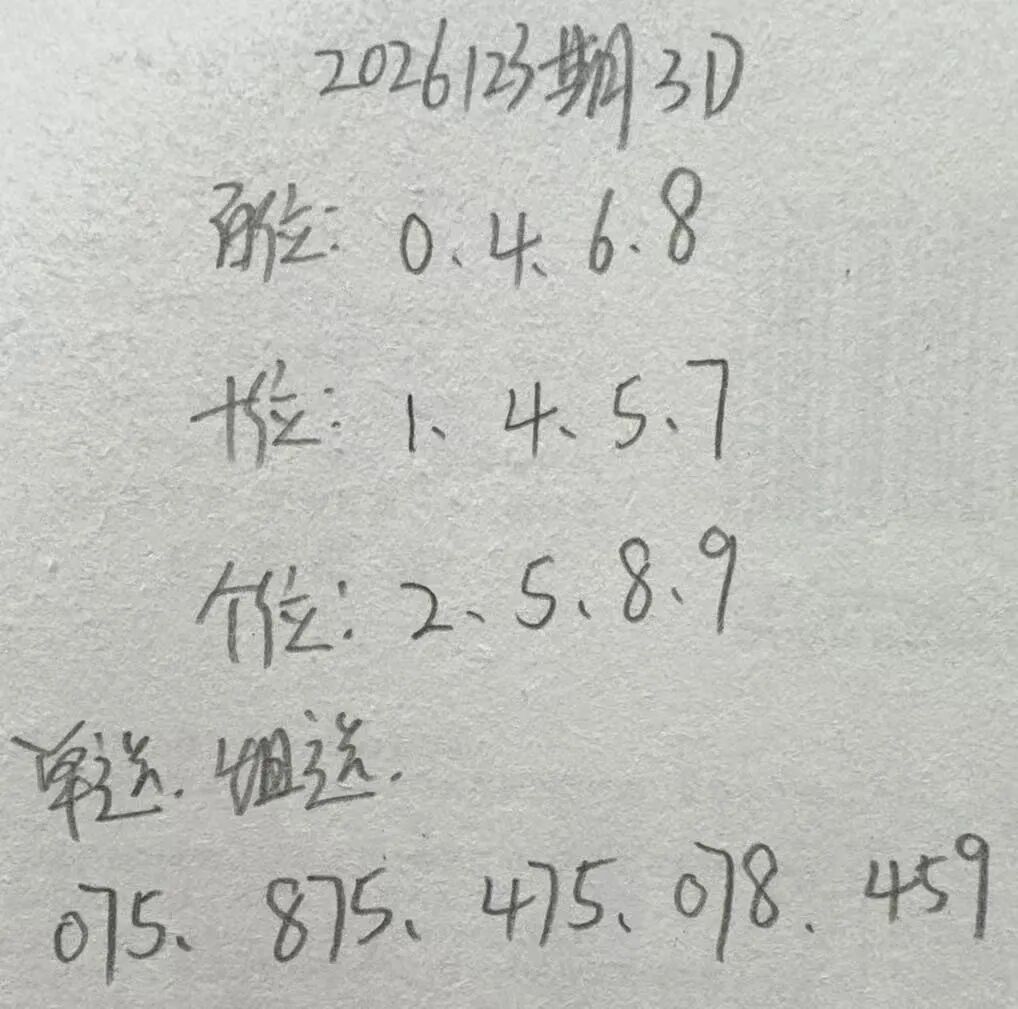 2026123期3D
百位：0、4、6、8
十位：1、4、5、7
个位：2、5、8、9
单选.组选.
075、875、475、078、459